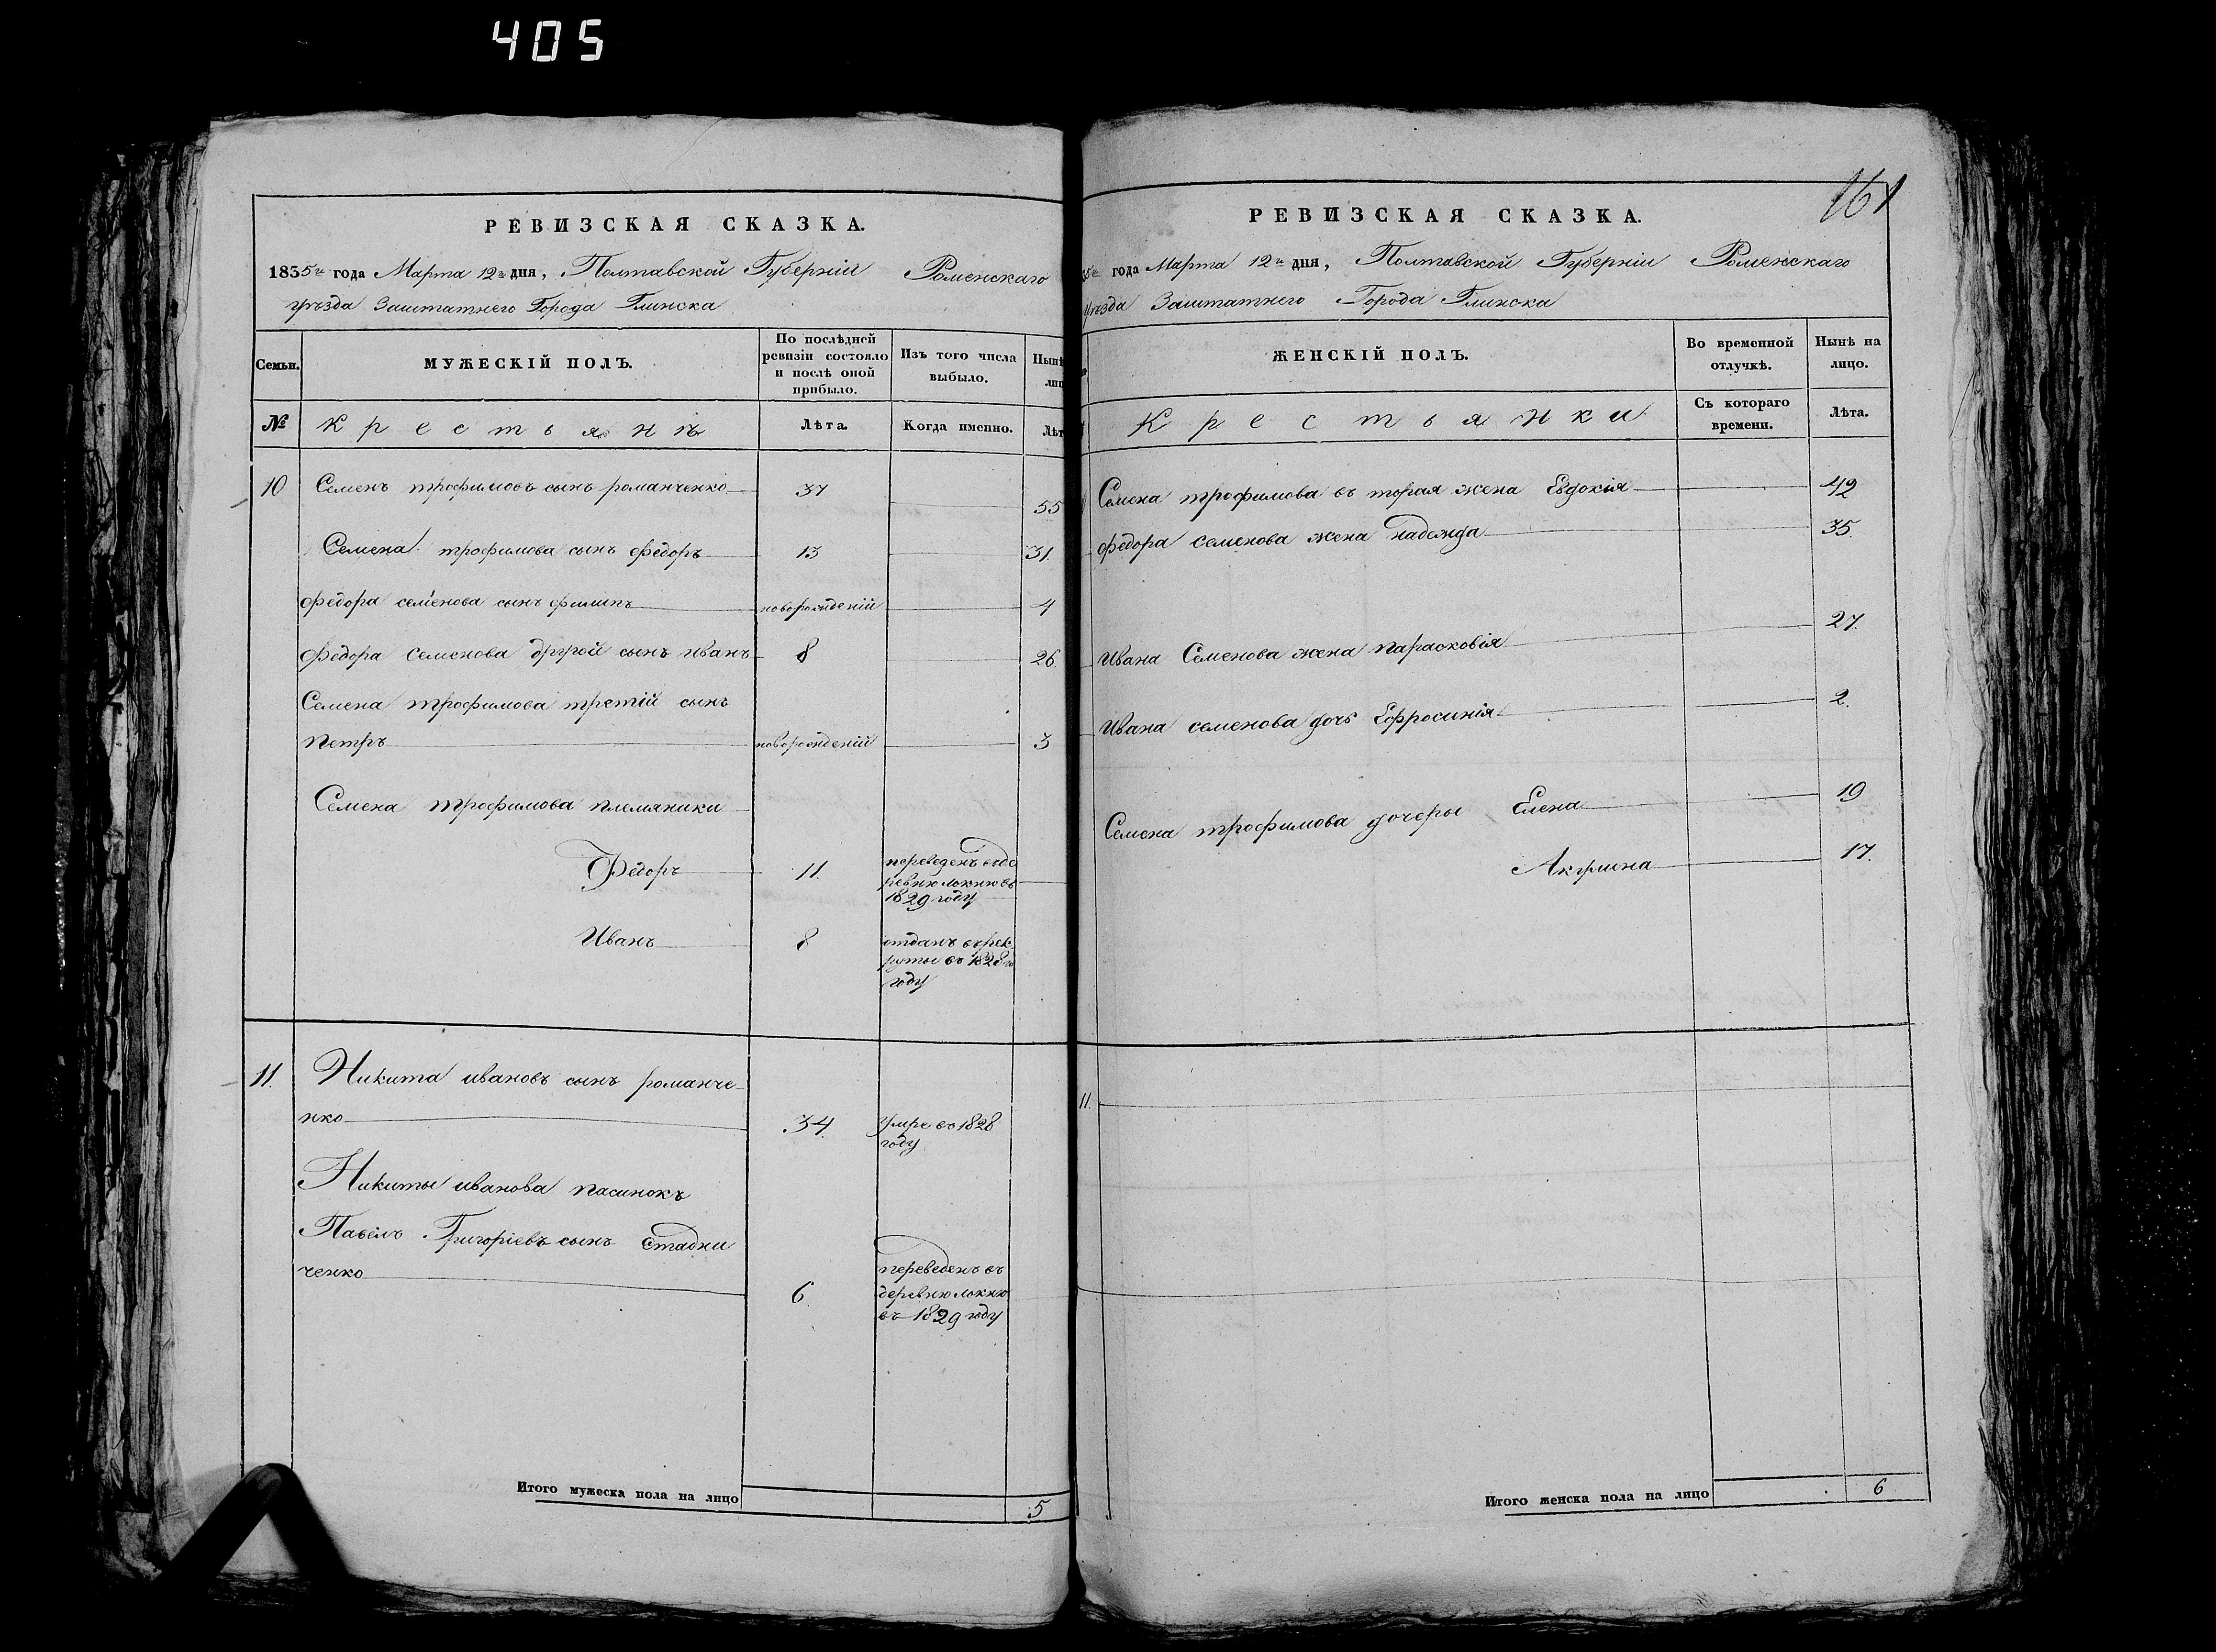 405
РЕВИЗСКАЯ СКАЗКА.
1835го года Марта 12го дня, Полтавской Губерніи Роменскаго
уѣзда Заштатнего Города Глинска
Семьи.
МУЖЕСКІЙ ПОЛЪ.
По послѣдней
ревизіи состояло
и послѣ оной
прибыло.
Изъ того числа
выбыло.
Нынѣ
лиц
№
Крестьянъ
Лѣта.
Когда именно.
Лѣт
10 Семенъ трофимовъ сынъ романченко 37 55
Семена трофимова сынъ федоръ 13 31.
федора семенова сынъ филипъ новорожденій 4
федора семенова другой сынъ иванъ 8 26
Семена трофимова третій сынъ
петръ новорожденій 3
Семена трофимова племяники
Федоръ 11. переведенъ въде
ревню локню въ
1829 году
Иванъ 8 отданъ въ рек
руты въ 1828го
году
11. Никита ивановъ сынъ романче
нко 34. умре во 1828
году
Никиты иванова пасинокъ
Павелъ Григоріевъ сынъ Стадни
ченко 6. переведенъ въ
деревню локню
въ 1829 году
Итого мужеска пола на лицо 5
161
РЕВИЗСКАЯ СКАЗКА.
35го года Марта 12го дня, Полтавской Губерніи Роменскаго
Уѣзда Заштатнего Города Глинска
ЖЕНСКІЙ ПОЛЪ.
Во временной
отлучкѣ.
Нынѣ на
лицо.
Крестьянки
Съ котораго
времени.
Лѣта.
Семена трофимова въ торая жена Евдокія 42
федора семенова жена надежда 35.
Ивана Семенова жена парасковія 27.
Ивана семенова дочь Ефросинія 2.
Семена трофимова дочеры Елена 19
Акулина 17.
11.
Итого женска пола на лицо 6